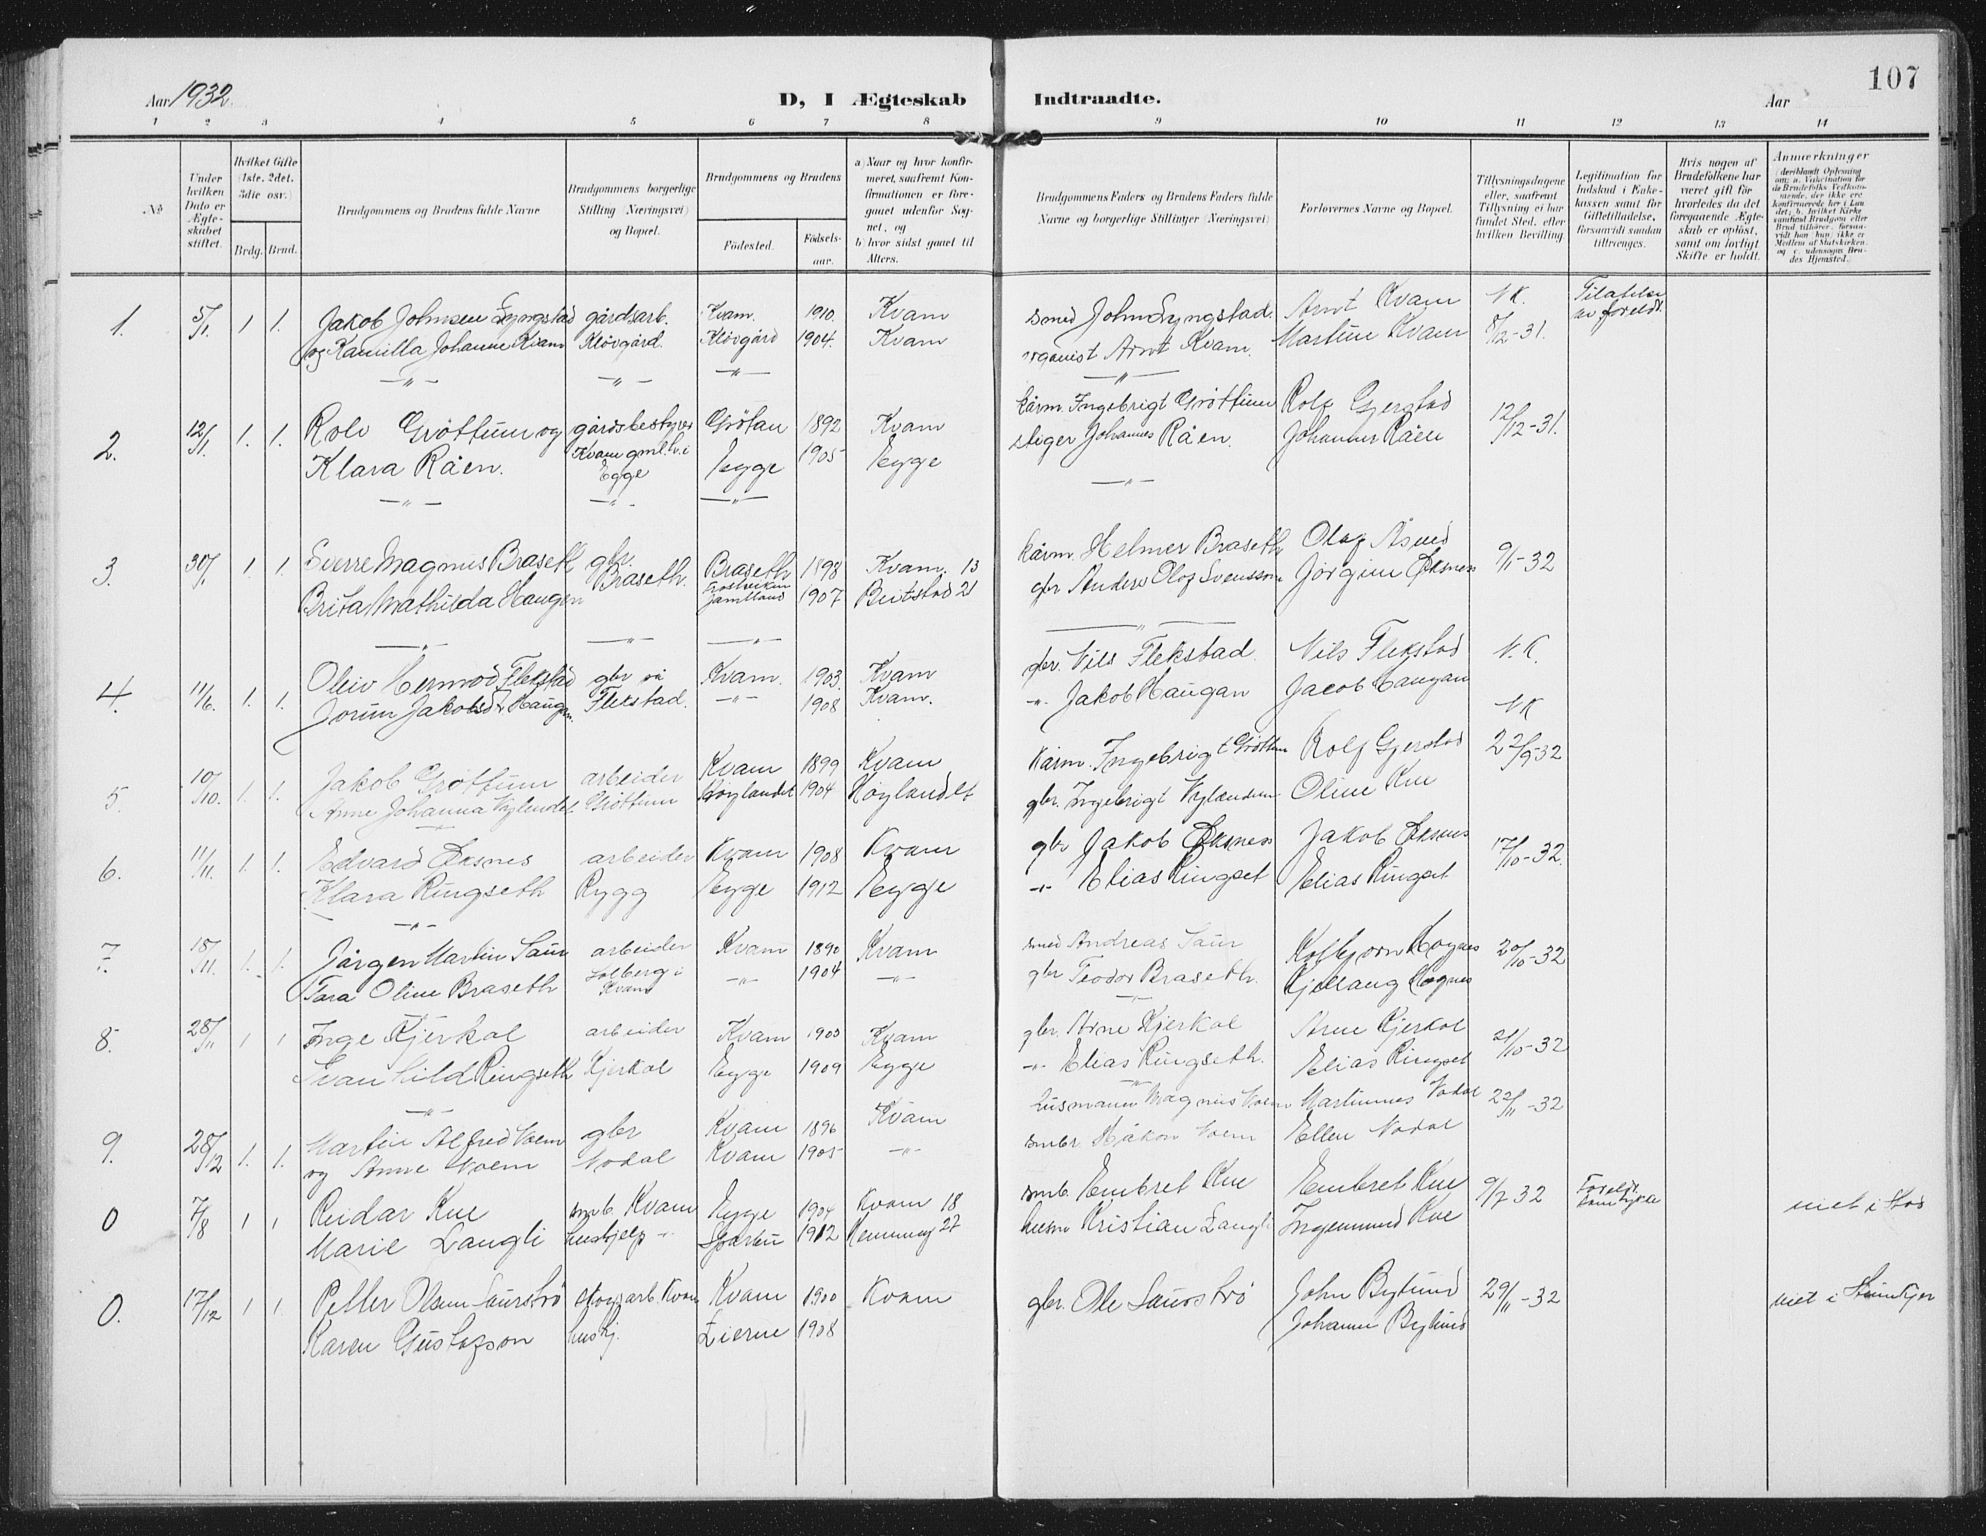 107
Aar 1932.
D, I Ægteskab
Indtraadte.
Aar
1 2 3 4 5 6 7 8 9 10 11 12 13 14
No
Under hvilken Dato er Ægteskabet stiftet.
Hvilket Gifte (1ste, 2det, 3die osv.)
Brdg. Brud.
Brudgommens og Brudens fulde Navne
Brudgommens borgerlige Stilling (Næringsvei) og Bopæl.
Brudgommens og Brudens
Födested.
Födselsaar.
a) Naar og hvor konfirmeret, saafremt Konfirmationen er foregaaet udenfor Sognet, og
b) hvor sidst gaaet til Alters.
Brudgommens Faders og Brudens Faders fulde Navne og borgerlige Stillinger (Næringsvei)
Forlovernes Navne og Bopæl.
Tillysningsdagene eller, saafremt Tillysning ei har fundet Sted, efter hvilken Bevilling
Legitimation for Indskud i Enkekassen samt for Giftetilladelse, forsaavidt saadan tiltrænges.
Hvis nogen af Brudefolkene har været gift før hvorledes da det foregaaende Ægteskab er opløst, samt om lovligt Skifte er holdt.
Anmærkninger
1. 5/1 1 1. Jakob Johnsen Lyngstad gårdsarb. Kvam. 1910. Kvam smed John Lyngstad. Arnt Kvam N.K. Tilatelse av foreldr.
og Kamilla Johanne Kvam Kløvgård. Kløvgård 1904. Kvam organist Arnt Kvam. Martin Kvam 8/12-31.
2. 12/1. 1. 1. Rolv Grøttum og gårdsbestyrer Grøtan 1892 Kvam kårm. Ingebrigt Grøttum Rolf Gjerstad 12/12-31.
Klara Råen. Kvam gml. h. i Egge Egge 1905 Egge stiger Johannes Råen. Johannes Råen
3. 30/1 1. 1 Sverre Magnus Braseth gbr. Braseth. Braseth 1898 Kvam. 13 kårm. Helmer Braseth Olaf Åsnes 9/1-32
Brita Mathilda Haugen Frostviken Jämtland 1907 Beitstad 21 gbr Anders Olof Svensson Jørgen Øksnes
4. 11/6. 1. 1. Oleiv Hermod Flekstad gbr på Kvam. 1903. Kvam gbr. Nils Flekstad. Nils Flekstad N.K.
Jorun Jakobsd. Haugan. Flekstad. -"- 1908 Kvam. -"- Jakob Haugan Jacob Haugan N.K
5. 10/10. 1. 1. Jakob Grøttum arbeider Kvam 1899 Kvam kårm. Ingebrigt Grøttum Rolf Gjerstad 22/9-32
Anne Johanna Vylendel Grøttum Høylandet 1904 Høylandet gbr. Ingebrigt Oline Kne
6. 11/11. 1. 1. Edvard Øksnes arbeider Kvam 1908 Kvam gbr Jakob Øksnes Jakob Øksnes 17/10-32.
Klara Ringseth Rygg Egge 1912 Egge -"- Elias Ringset Elias Ringset
7. 15/11. 1. 1. Jørgen Martin Saur arbeider Kvam 1890 Kvam smed Andreas Saur Kolbjørn Hognes 20/10-32
Tora Oline Braseth Solberg i Kvam -"- 1904 -"- gbr Teodor Braseth. Kjellaug Hognes
8. 28/11 1 1 Inge Kjerkol arbeider Kvam 1903 Kvam gbr. Arne Kjerkol Arne Kjerkol 21/10-32
Svanhild Ringseth Kjerkol Egge 1909 Egge -"- Elias Ringseth. Elias Ringset
9. 28/12 1. 1. Martin Alfred Voem gbr Kvam 1896 Kvam husmann Magnus Voem Martinnes Vodal 22/11-32
og Anne Voem Vodal Kvam 1905 -"- smbr. Håkon Voem Ellen Vodal
0 7/8 1 1 Reidar Kne smb. Kvam Egge 1904 Kvam 18 smb. Embret Kne Embret Kne 9/7 32 Foreldr. samtykke viet i Stod
Marie Langli hushjelp -"- Sparbu 1912 27 husm Kristian Langli Ingemund Kne
0. 17/12 1 1 Petter Olsen Saurstrø skogsarb. Kvam Kvam 1900 Kvam gbr. Ole Saurstrø John Bylund 29/11-32 viet i Steinkjer
Karen Gustafson hushj. Lierne 1908 Johanne Bylund